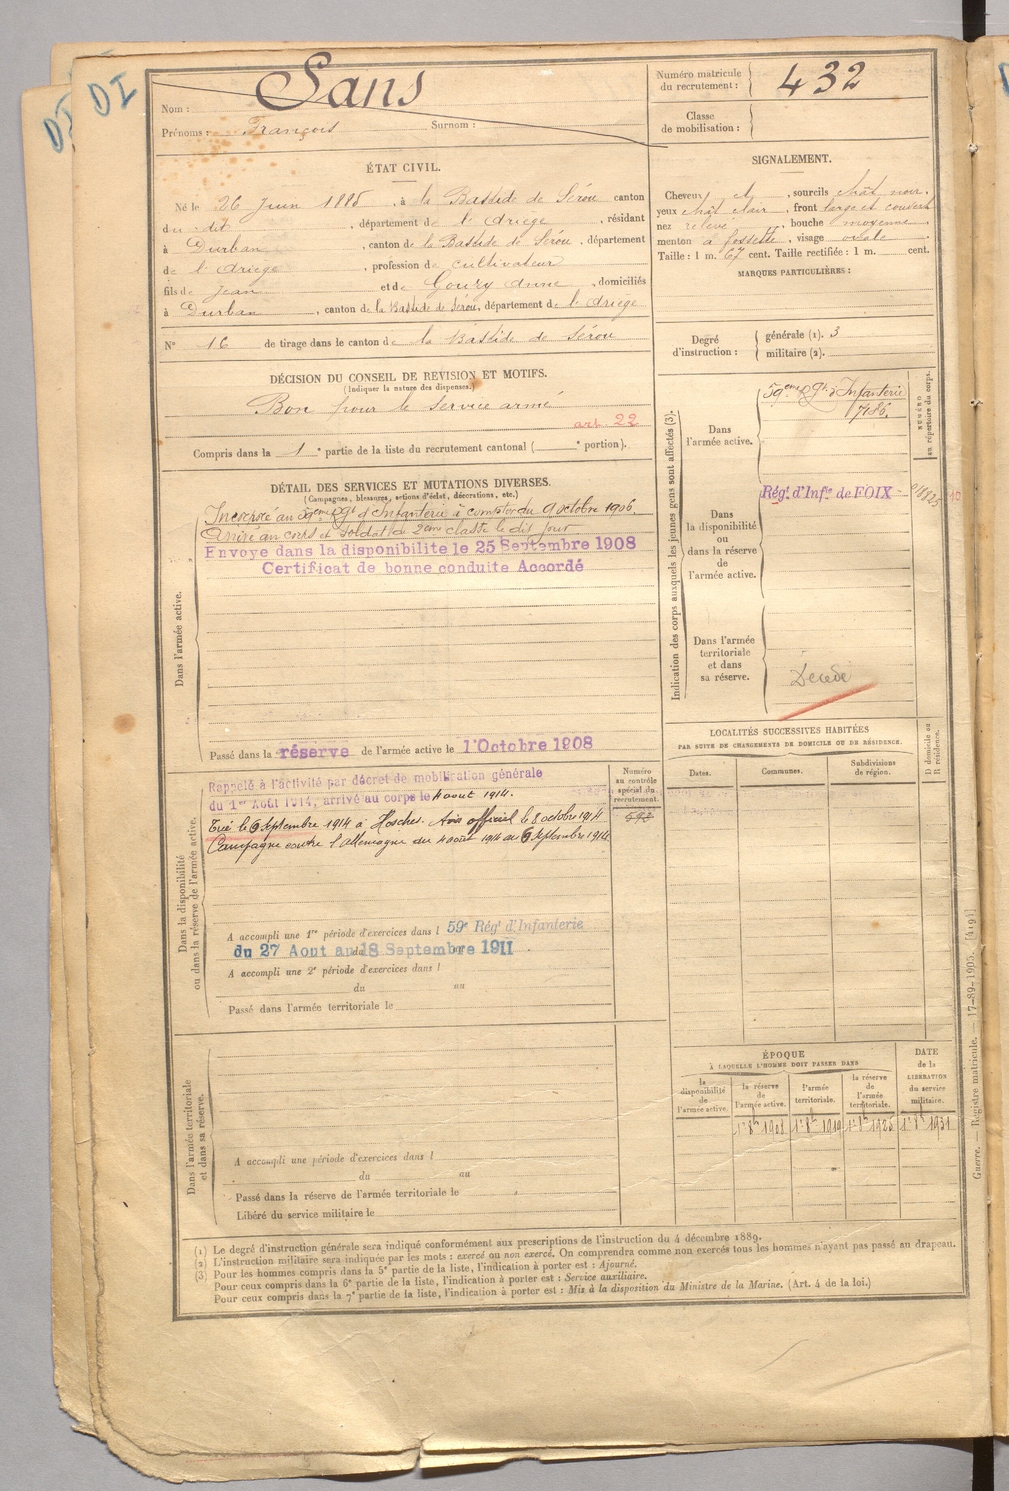 DI
DI
Nom : Sans
Prénoms : François Surnom :
Numéro matricule du recrutement : 432
Classe de mobilisation :
ÉTAT CIVIL.
Né le 26 Juin 1885, à la Bastide de Sérou canton
du dit, département de l'Ariège, résidant
à Durban, canton de la Bastide de Sérou, département
de l'Ariège, profession de cultivateur
fils de Jean et de Goury Anne, domiciliés
à Durban, canton de la Bastide de Sérou, département de l'Ariège
N° 16 de tirage dans le canton de la Bastide de Sérou
SIGNALEMENT.
Cheveux et, sourcils chât noir,
yeux chât clair, front large et couvert
nez relevé, bouche moyenne
menton à fossette, visage ovale
Taille : 1 m. 67 cent. Taille rectifiée : 1 m. cent.
MARQUES PARTICULIÈRES :
Degré d'instruction : générale (1). 3
militaire (2).
DÉCISION DU CONSEIL DE REVISION ET MOTIFS.
(Indiquer la nature des dispenses.)
Bon pour le service armé
art. 22
Compris dans la 1e partie de la liste du recrutement cantonal ( e portion).
DÉTAIL DES SERVICES ET MUTATIONS DIVERSES.
(Campagnes, blessures, actions d'éclat, décorations, etc.)
Dans l'armée active.
Incorporé au 59eme Rgt d'Infanterie à compter du 9 octobre 1906.
Arrivé au corps et soldat de 2eme classe le dit jour
Envoye dans la disponibilite le 25 Septembre 1908
Certificat de bonne conduite Accordé
Passé dans la réserve de l'armée active le 1 Octobre 1908
Indication des corps auxquels les jeunes gens sont affectés (3).
NUMÉRO au répertoire du corps.
Dans l'armée active.
59eme Rgt d'Infanterie
7186.
Dans la disponibilité ou dans la réserve de l'armée active.
Régt. d'Infie de FOIX
Dans l'armée territoriale et dans sa réserve.
Décédé
LOCALITÉS SUCCESSIVES HABITÉES
PAR SUITE DE CHANGEMENTS DE DOMICILE OU DE RÉSIDENCE.
Dates. Communes. Subdivisions de région.
D domicile ou R résidence.
Dans la disponibilité ou dans la réserve de l'armée active.
Numéro au contrôle spécial du recrutement.
Rappelé à l'activité par décret de mobilisation générale
du 1er Août 1914, arrivé au corps le 4 aout 1914.
Tué le 6 Septembre 1914 à Hosches. Avis officiel le 8 octobre 1914
Campagne contre l'Allemagne du 4 août 1914 au 6 Septembre 1914
A accompli une 1re période d'exercices dans l 59e Régt d'Infanterie
du 27 Aout au 18 Septembre 1911
A accompli une 2e période d'exercices dans l
du au
Passé dans l'armée territoriale le
Dans l'armée territoriale et dans sa réserve.
A accompli une période d'exercices dans l
du au
Passé dans la réserve de l'armée territoriale le
Libéré du service militaire le
ÉPOQUE
À LAQUELLE L'HOMME DOIT PASSER DANS
la disponibilité de l'armée active.
la réserve de l'armée active.
l'armée territoriale.
la réserve de l'armée territoriale.
DATE de la LIBÉRATION du service militaire.
1er 8bre 1908 1er 8bre 1919 1er 8bre 1925 1er 8bre 1931
Guerre. — Registre matricule. — 17-89-1905. [4191]
(1) Le degré d'instruction générale sera indiqué conformément aux prescriptions de l'instruction du 4 décembre 1889.
(2) L'instruction militaire sera indiquée par les mots : exercé ou non exercé. On comprendra comme non exercés tous les hommes n'ayant pas passé au drapeau.
(3) Pour les hommes compris dans la 5e partie de la liste, l'indication à porter est : Ajourné.
Pour ceux compris dans la 6e partie de la liste, l'indication à porter est : Service auxiliaire.
Pour ceux compris dans la 7e partie de la liste, l'indication à porter est : Mis à la disposition du Ministre de la Marine. (Art. 4 de la loi.)